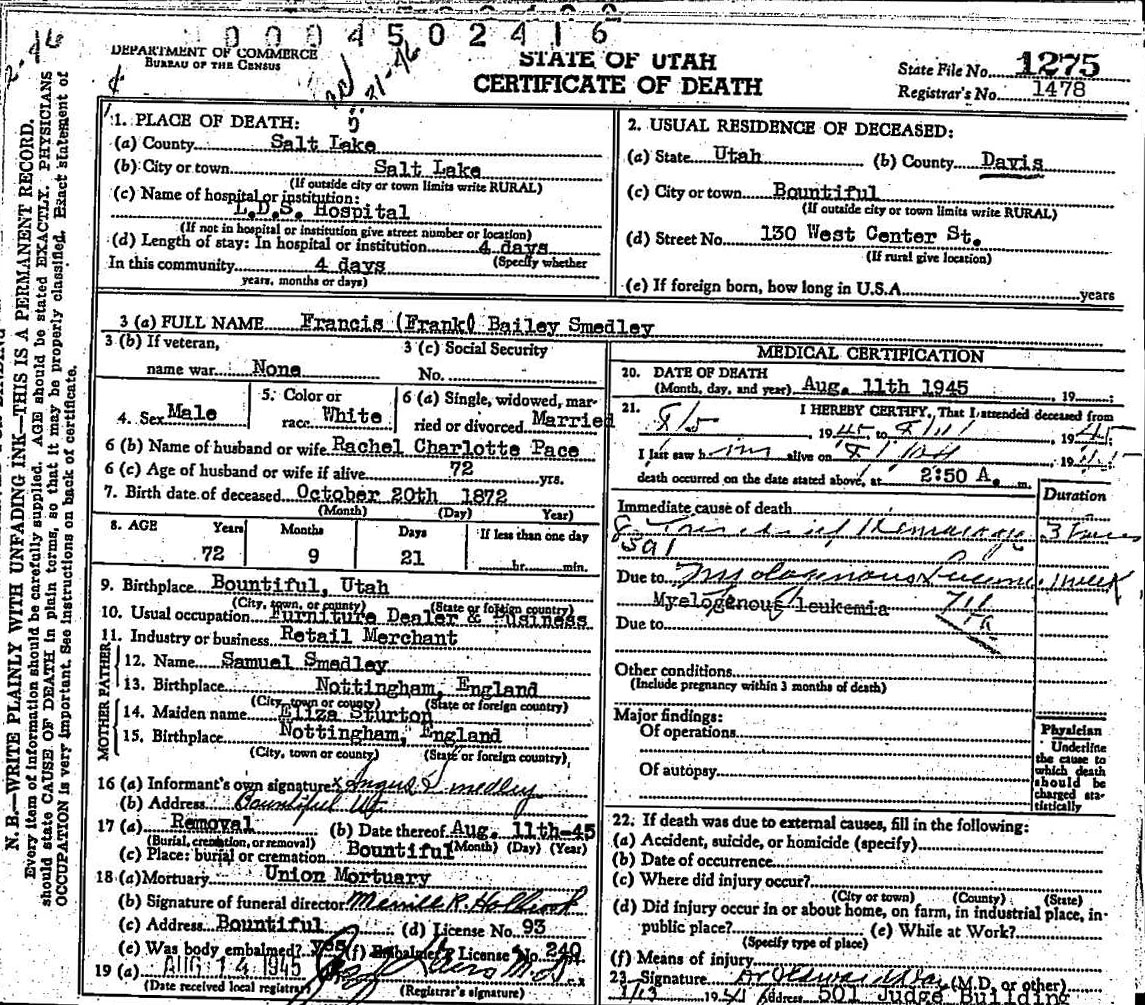 0004502416
DEPARTMENT OF COMMERCE
BUREAU OF THE CENSUS
STATE OF UTAH
CERTIFICATE OF DEATH
State File No. 1275
Registrar's No. 1478
N. B.—WRITE PLAINLY WITH UNFADING INK—THIS IS A PERMANENT RECORD.
Every item of information should be carefully supplied. AGE should be stated EXACTLY. PHYSICIANS
should state CAUSE OF DEATH in plain terms, so that it may be properly classified. Exact statement of
OCCUPATION is very important. See instructions on back of certificate.
1. PLACE OF DEATH:
(a) County Salt Lake
(b) City or town Salt Lake
(If outside city or town limits write RURAL)
(c) Name of hospital or institution:
L.D.S. Hospital
(If not in hospital or institution give street number or location)
(d) Length of stay: In hospital or institution 4 days
In this community 4 days (Specify whether
years, months or days)
2. USUAL RESIDENCE OF DECEASED:
(a) State Utah (b) County Davis
(c) City or town Bountiful
(If outside city or town limits write RURAL)
(d) Street No. 130 West Center St.
(If rural give location)
(e) If foreign born, how long in U.S.A. years
3 (a) FULL NAME Francis (Frank) Bailey Smedley
3 (b) If veteran,
name war None
3 (c) Social Security
No.
4. Sex Male
5. Color or
race White
6 (a) Single, widowed, mar-
ried or divorced Married
6 (b) Name of husband or wife Rachel Charlotte Pace
6 (c) Age of husband or wife if alive 72 yrs.
7. Birth date of deceased October 20th 1872
(Month) (Day) Year)
8. AGE Years Months Days If less than one day
72 9 21 hr. min.
9. Birthplace Bountiful, Utah
(City, town, or county) (State or foreign country)
10. Usual occupation Furniture Dealer & Business
11. Industry or business Retail Merchant
FATHER
12. Name Samuel Smedley
13. Birthplace Nottingham, England
(City, town or county) (State or foreign country)
MOTHER
14. Maiden name Eliza Sturton
15. Birthplace Nottingham, England
(City, town or county) (State or foreign country)
16 (a) Informant's own signature x Angus Smedley
(b) Address Bountiful Ut
17 (a) Removal (b) Date thereof Aug. 11th-45
(Burial, cremation, or removal) (Month) (Day) (Year)
(c) Place: burial or cremation Bountiful
18 (a) Mortuary Union Mortuary
(b) Signature of funeral director Merrill R. Holbrook
(c) Address Bountiful (d) License No. 93
(e) Was body embalmed? yes (f) Embalmer's License No. 240
19 (a) AUG 14 1945
(Date received local registrar) (Registrar's signature)
MEDICAL CERTIFICATION
20. DATE OF DEATH
(Month, day, and year) Aug. 11th 1945 19
21. I HEREBY CERTIFY, That I attended deceased from
8/5 1945 to 8/11 1945
I last saw him alive on
death occurred on the date stated above, at 2:50 A. m.
Duration
Immediate cause of death
Due to 1 week
Myelogenous leukemia
Due to
Other conditions
(Include pregnancy within 3 months of death)
Major findings:
Of operations
Of autopsy
Physician
Underline
the cause to
which death
should be
charged sta-
tistically
22. If death was due to external causes, fill in the following:
(a) Accident, suicide, or homicide (specify)
(b) Date of occurrence
(c) Where did injury occur?
(City or town) (County) (State)
(d) Did injury occur in or about home, on farm, in industrial place, in-
public place? (e) While at Work?
(Specify type of place)
(f) Means of injury
23. Signature (M.D. or other)
Address 501 Judge Building